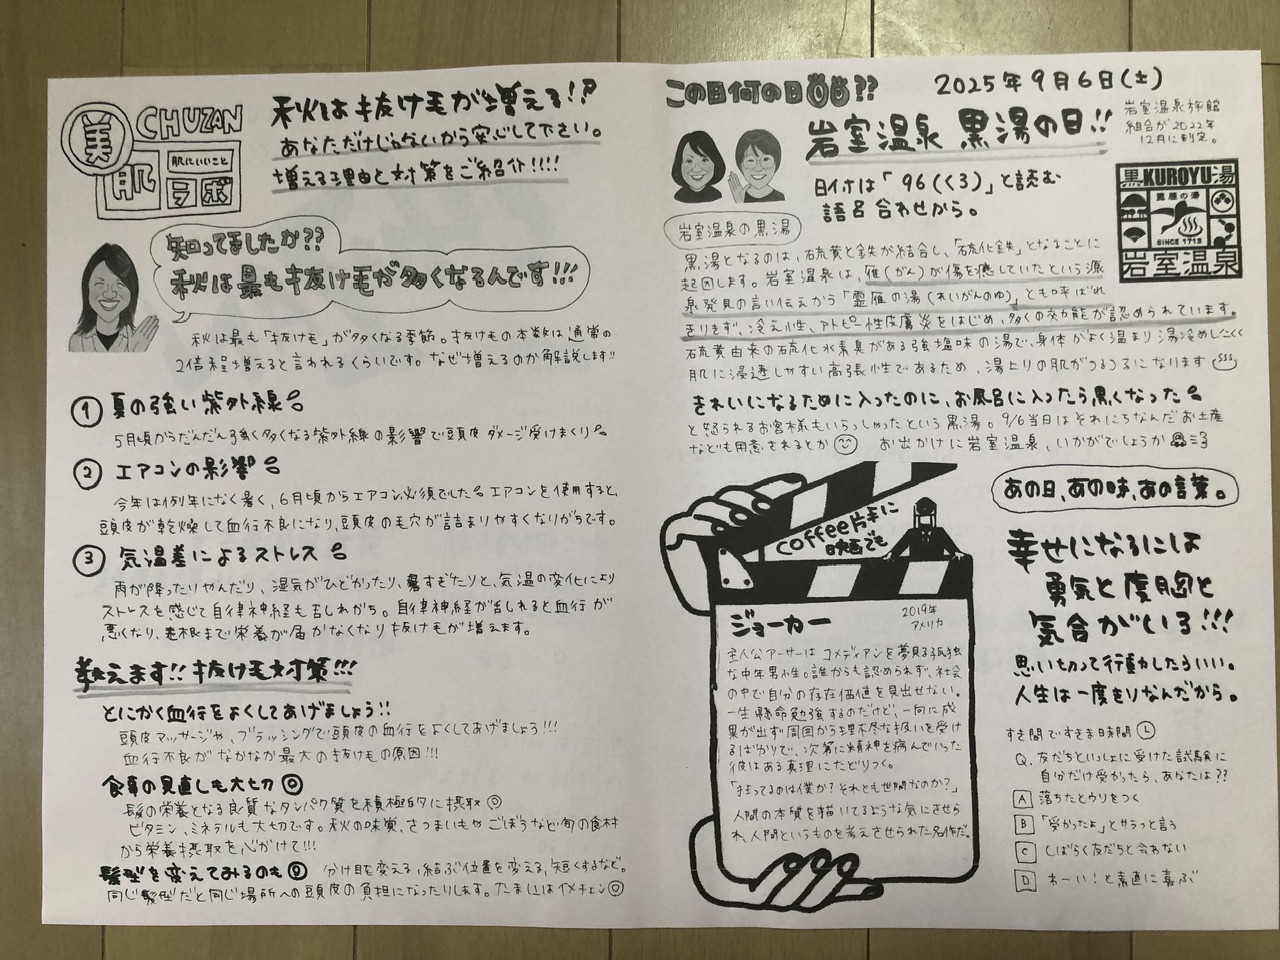 CHUZAN
美
肌
肌にいいこと
ヲボ
秋は抜け毛が増える!?
あなただけじゃないから安心して下さい。
増える理由と対策をご紹介!!!!
知ってましたか??
秋は最も抜け毛が多くなるんです!!!
秋は最も「抜け毛」が多くなる季節。抜けもの本数は通常の
2倍程増えると言われるくらいです。なぜ増えるのか解説します!!
① 夏の強い紫外線
5月頃からだんだん強く多くなる紫外線の影響で頭皮ダメージ受けまくり
② エアコンの影響
今年は例年になく暑く、6月頃からエアコン必須でした エアコンを使用すると、
頭皮が乾燥して血行不良になり、頭皮の毛穴が詰まりやすくなりがちです。
③ 気温差によるストレス
雨が降ったりやんだり、湿気がひどかったり、暑すぎたりと、気温の変化により
ストレスを感じて自律神経も乱れがち。自律神経が乱れると血行が
悪くなり、毛根まで栄養が届かなくなり抜け毛が増えます。
教えます!! 抜け毛対策!!!
とにかく血行をよくしてあげましょう!!
頭皮マッサージや、ブラッシングで頭皮の血行をよくしてあげましょう!!!
血行不良がなかなか最大の抜けもの原因!!!
食事の見直しも大切◎
髪の栄養となる良質なタンパク質を積極的に摂取◎
ビタミン、ミネラルも大切です。秋の味覚、さつまいもやごぼうなど旬の食材
から栄養摂取を心がけて!!!
髪型を変えてみるのも◎ 分け目を変える、結ぶ位置を変える、短くするなど。
同じ髪型だと同じ場所への頭皮の負担になったりします。たまにはイメチェン◎
この日何の日??
2025年9月6日(土)
岩室温泉 黒湯の日!!
岩室温泉旅館
組合が2022年
12月に制定。
日付は「96(くろ)」と読む
語呂合わせから。
黒KUROYU湯
霊雁の湯
SINCE 1713
岩室温泉
岩室温泉の黒湯
黒湯となるのは、硫黄と鉄が結合し、「硫化鉄」となることに
起因します。岩室温泉は、雁(がん)が傷を癒していたという源
泉発見の言い伝えから「霊雁の湯(れいがんのゆ)」とも呼ばれ
きりきず、冷え性、アトピー性皮膚炎をはじめ、多くの効能が認められています。
硫黄由来の硫化水素臭がある強塩味の湯で、身体がよく温まり湯冷めしにくく
肌に浸透しやすい高張性であるため、湯上りの肌がうるうるになります
きれいになるために入ったのに、お風呂に入ったら黒くなった
と怒られるお客様もいらっしゃったという黒湯。9/6当日はそれにちなんだお土産
なども用意されるとか お出かけに岩室温泉、いかがでしょうか
coffee片手に
映画でも
ジョーカー
2019年
アメリカ
主人公アーサーはコメディアンを夢見る孤独
な中年男性。誰からも認められず、社会
の中で自分の存在価値を見出せない。
一生懸命勉強するのだけど、一向に成
果が出ず周囲から理不尽な扱いを受け
るばかりで、次第に精神を病んでいった
彼はある真理にたどりつく。
「狂ってるのは僕か?それとも世間なのか?」
人間の本質を描いてるような気にさせら
れ、人間というものを考えさせられた名作だ。
あの日、あの時、あの言葉。
幸せになるには
勇気と度胸と
気合がいる!!!
思い切って行動したらいい。
人生は一度きりなんだから。
すき間ですきま時間
Q. 友だちといっしょに受けた試験に
自分だけ受かったら、あなたは??
A 落ちたとウソをつく
B 「受かったよ」とサラッと言う
C しばらく友だちと会わない
D わーい!と素直に喜ぶ